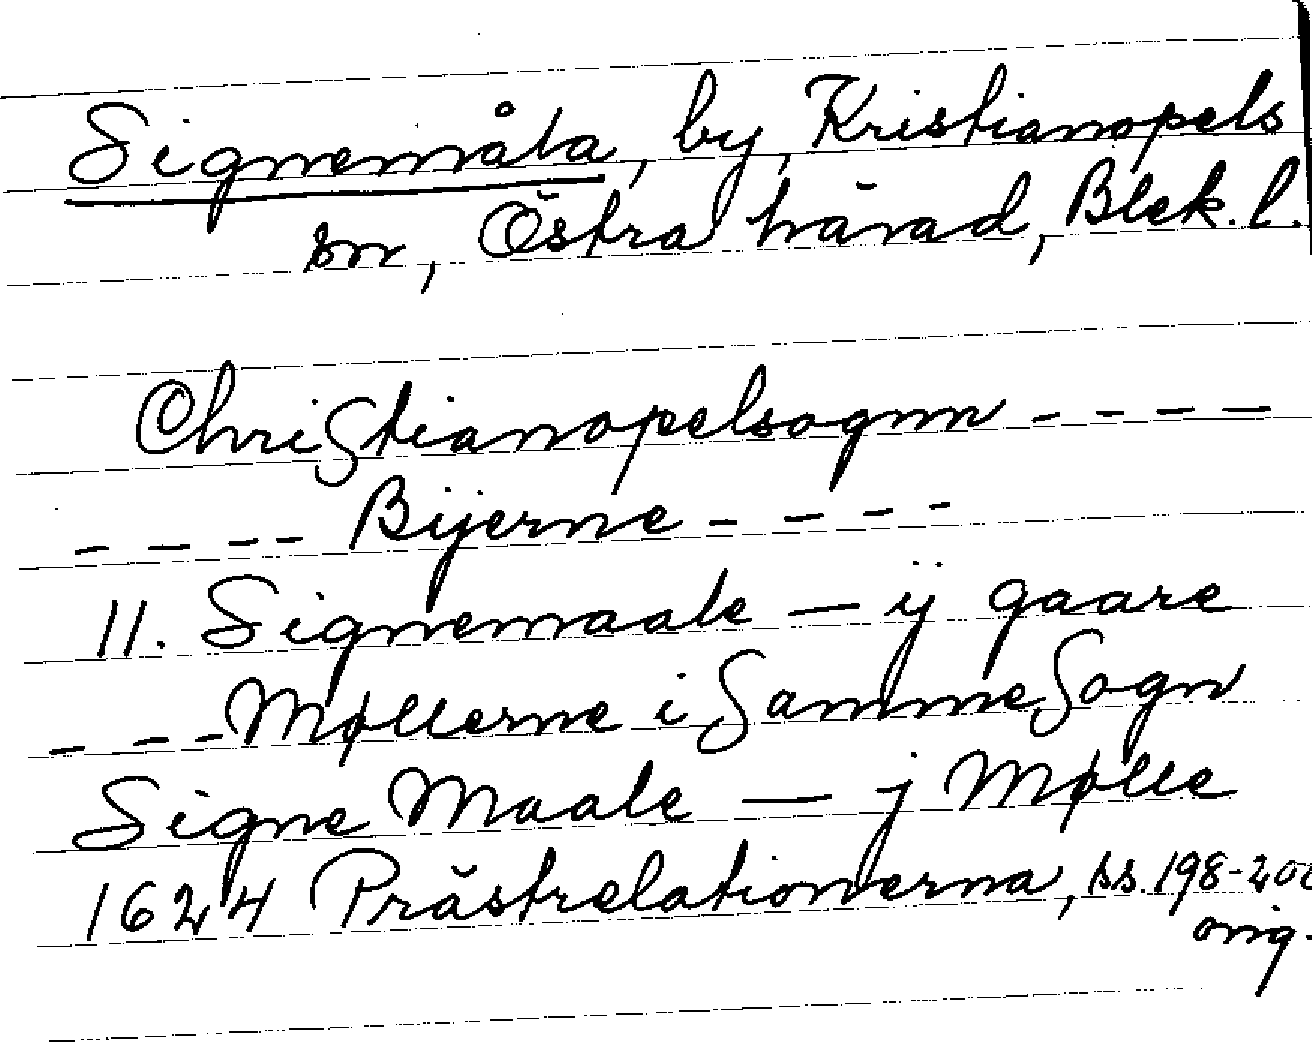 Signemåla, by, Kristianopels
sn, Östra härad, Blek. l.
Christianopelsognn - - - -
- - - - Bijerne - - - -
11. Signemaale — ij gaare
- - - Møllerne i Samme Sogn
Signe Maale — j Mølle
1624 Prästrelationerna, ss. 198-200
orig.